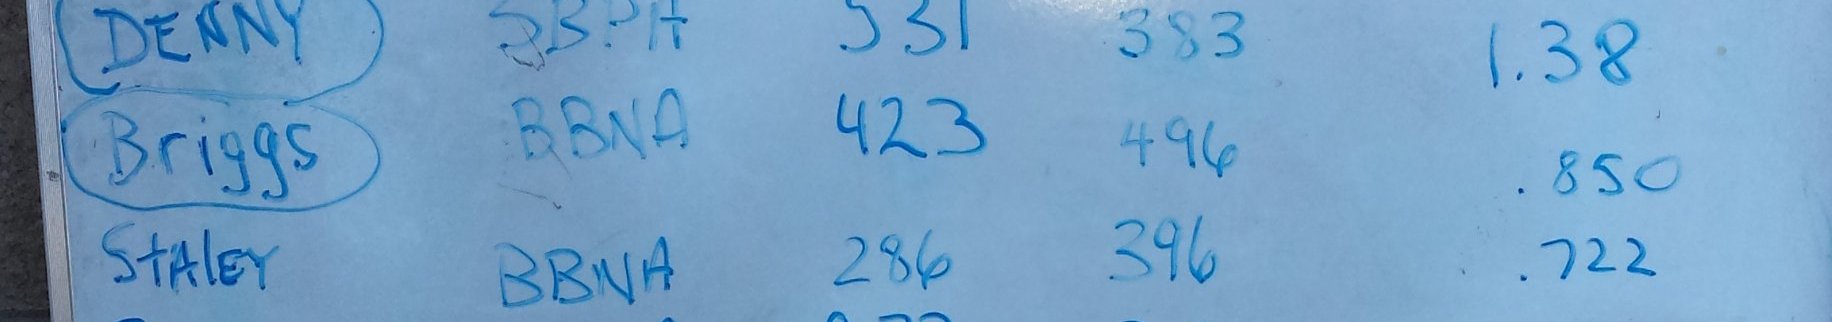 DENNY SBPA 531 383 1.38
Briggs BBNA 423 496 .850
StAlEY BBNA 286 396 .722